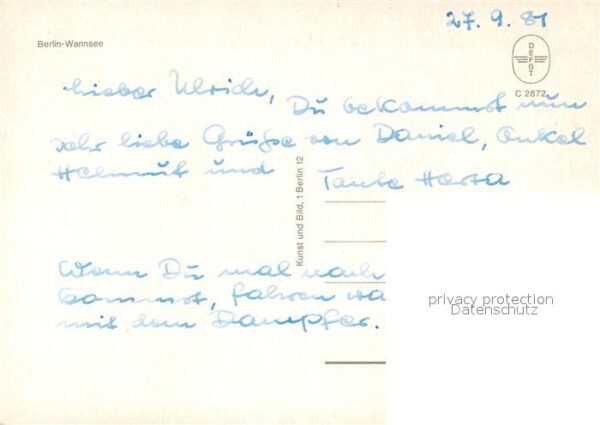 27.9.81
Berlin-Wannsee
DEFOT
C 2872
Lieber Ulrich,
Du bekommst nun
sehr liebe Grüße von Daniel, Onkel
Helmut und Tante Herta
Kunst und Bild, 1 Berlin 12
Wenn Du mal nach
kommst, fahren
mit dem Dampfer.
privacy protection
Datenschutz